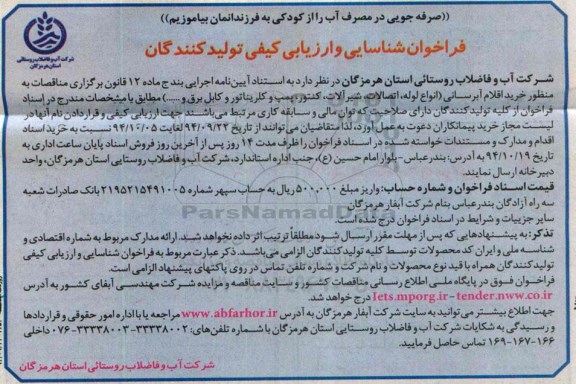 ((صرفه جویی در مصرف آب را از کودکی به فرزندانمان بیاموزیم))
شرکت آب و فاضلاب روستائی
استان هرمزگان
فراخوان شناسایی و ارزیابی کیفی تولیدکنندگان
شرکت آب و فاضلاب روستائی استان هرمزگان در نظر دارد به استناد آیین‌نامه اجرایی بند ج ماده ۱۲ قانون برگزاری مناقصات به
منظور خرید اقلام آبرسانی (انواع لوله، اتصالات، شیرآلات، کنتور، پمپ و کلریناتور و کابل برق و .....) مطابق با مشخصات مندرج در اسناد
فراخوان از کلیه تولیدکنندگان دارای صلاحیت و توان مالی و سابقه کاری مرتبط می‌باشند جهت ارزیابی کیفی و قراردادن نام آنها در
لیست مجاز خرید پیمانکاران دعوت به عمل آورد، لذا متقاضیان می‌توانند از تاریخ ۹۴/۰۹/۲۲ لغایت ۹۴/۱۰/۰۵ نسبت به خرید اسناد
اقدام و مدارک و مستندات خواسته شده در اسناد فراخوان را ظرف مدت ۱۴ روز پس از آخرین روز فروش اسناد پایان ساعت اداری به
تاریخ ۹۴/۱۰/۱۹ به آدرس: بندرعباس-بلوار امام حسین (ع)، جنب اداره استاندارد، شرکت آب و فاضلاب روستایی استان هرمزگان، واحد
دبیرخانه ارسال نمایند.
قیمت اسناد فراخوان و شماره حساب: واریز مبلغ ۵۰۰,۰۰۰ ریال به حساب سپهر شماره ۲۱۹۵۲۱۵۴۹۱۰۰۵ بانک صادرات شعبه
سه راه آزادگان بندرعباس بنام شرکت آبفار هرمزگان
سایر جزییات و شرایط در اسناد فراخوان درج شده است.
تذکر: به پیشنهادهایی که پس از مهلت مقرر ارسال شود مطلقاً ترتیب اثر داده نخواهد شد. ارائه مدارک مربوط به شماره اقتصادی و
شناسه ملی و ایران کد محصولات توسط کلیه تولیدکنندگان الزامی می‌باشد. ذکر عبارت مربوط به فراخوان شناسایی و ارزیابی کیفی
تولیدکنندگان همراه با قید نوع محصولات و نام شرکت و شماره تلفن تماس در روی پاکتهای پیشنهاد الزامی است.
فراخوان فوق در پایگاه ملی اطلاع رسانی مناقصات کشور و سایت مناقصه و مزایده شرکت مهندسی آبفای کشور به آدرس
Iets.mporg.ir- tender.nww.co.ir درج خواهد شد.
جهت اطلاع بیشتر می‌توانید به سایت شرکت آبفار هرمزگان به آدرس www.abfarhor.ir مراجعه یا با اداره امور حقوقی و قراردادها
و رسیدگی به شکایات شرکت آب و فاضلاب روستایی استان هرمزگان با شماره تلفن‌های: ۳۳۳۳۸۰۰۲-۳۳۳۳۸۰۰۳-۰۷۶ داخلی
۱۶۶-۱۶۷-۱۶۹ تماس حاصل فرمایید.
شرکت آب و فاضلاب روستائی استان هرمزگان
ParsNamadData